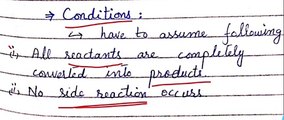 ⇒ Conditions :
↳ have to assume following
i, All reactants are completely
converted into products
ii, No side reaction occurs